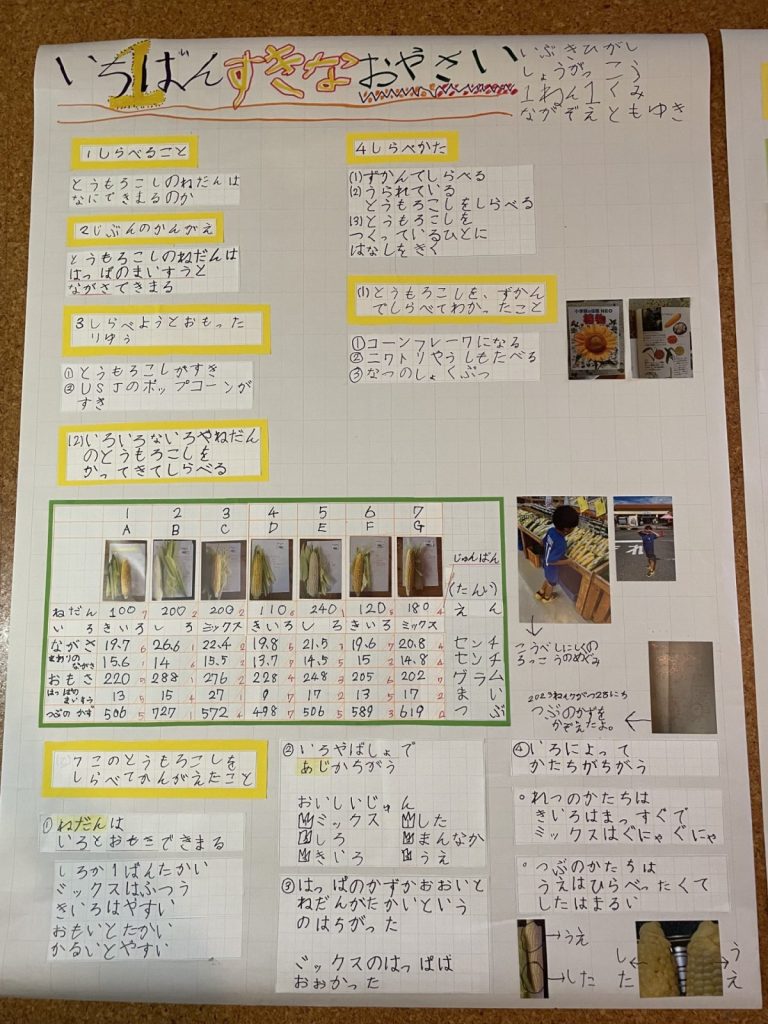 いちばんすきなおやさい
1
いぶきひがし
しょうがっこう
1ねん1くみ
ながぞえともゆき
1しらべること
とうもろこしのねだんは
なにできまるのか
2じぶんのかんがえ
とうもろこしのねだんは
はっぱのまいすうと
ながさできまる
3しらべようとおもった
りゆう
①とうもろこしがすき
②USJのポップコーンが
すき
4しらべかた
(1)ずかんでしらべる
(2)うられている
とうもろこしをしらべる
(3)とうもろこしを
つくっているひとに
はなしをきく
(1)とうもろこしを、ずかん
でしらべてわかったこと
①コーンフレークになる
②ニワトリやうしもたべる
③なつのしょくぶつ
小学館の図鑑 NEO
植物
(2)いろいろないろやねだん
のとうもろこしを
かってきてしらべる
1 2 3 4 5 6 7
A B C D E F G じゅんばん
(たんい)
ねだん 100 7 200 2 200 2 110 6 240 1 120 5 180 4 えん
いろ きいろ しろ ミックス きいろ しろ きいろ ミックス
ながさ 19.7 6 26.6 1 22.4 2 19.8 5 21.5 3 19.6 7 20.8 4 センチ
まわりのながさ 15.6 1 14 6 15.5 2 13.7 7 14.5 5 15 3 14.8 4 センチ
おもさ 220 5 288 1 276 2 228 4 248 3 205 6 202 7 グラム
はっぱのまいすう 13 5 15 4 27 1 9 7 17 2 13 5 17 2 まい
つぶのかず 506 5 727 1 572 4 498 7 506 5 589 3 619 2 つぶ
こうべしにしくの
ろっこうのめぐみ
2023ねん7がつ28にち
つぶのかずを
かぞえたよ。
7このとうもろこしを
しらべてかんがえたこと
①ねだんは
いろとおもさできまる
しろが1ばんたかい
ミックスはふつう
きいろはやすい
おもいとたかい
かるいとやすい
②いろやばしょで
あじがちがう
おいしいじゅん
1ミックス 1した
2しろ 2まんなか
3きいろ 3うえ
③はっぱのかずがおおいと
ねだんがたかいという
のはちがった
ミックスのはっぱは
おおかった
④いろによって
かたちがちがう
○れつのかたちは
きいろはまっすぐで
ミックスはぐにゃぐにゃ
○つぶのかたちは
うえはひらべったくて
したはまるい
うえ
した
した
うえ